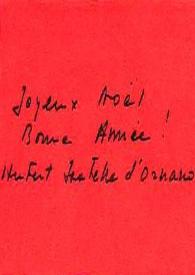 Joyeux Noël
Bonne Année !
Hubert Isabelle d'Ornano